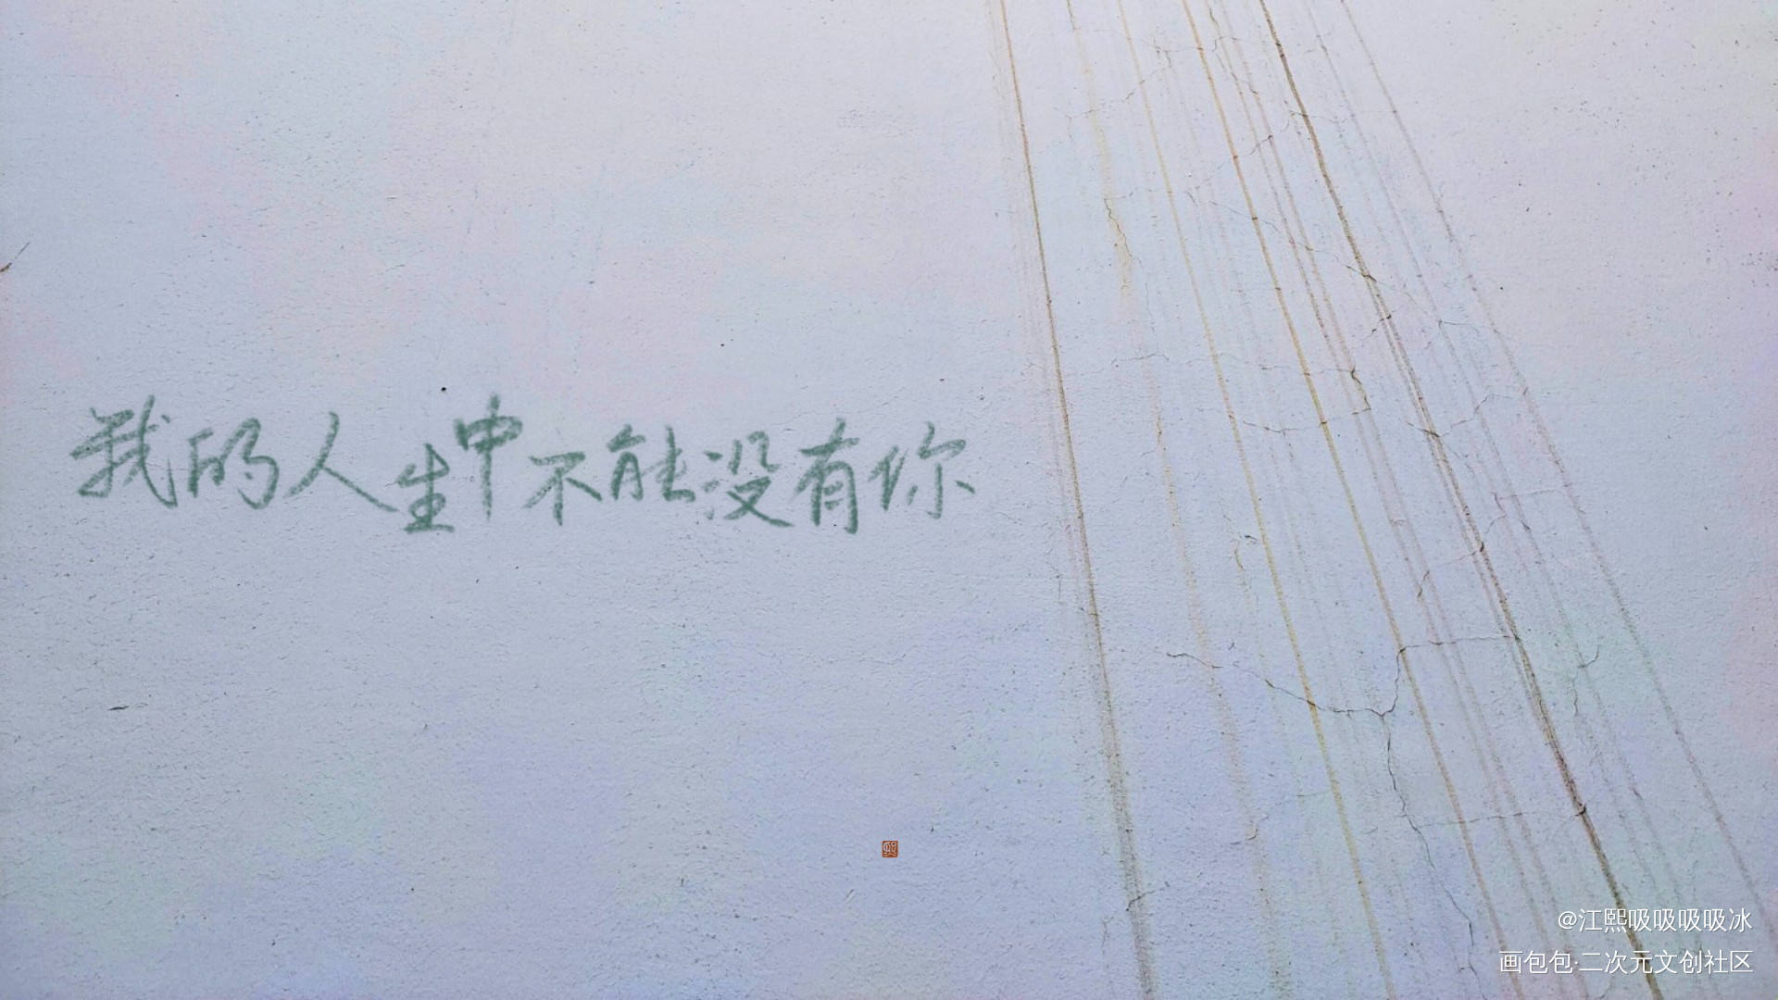 我的人生中不能没有你
熙
@江熙吸吸吸吸冰
画包包·二次元文创社区